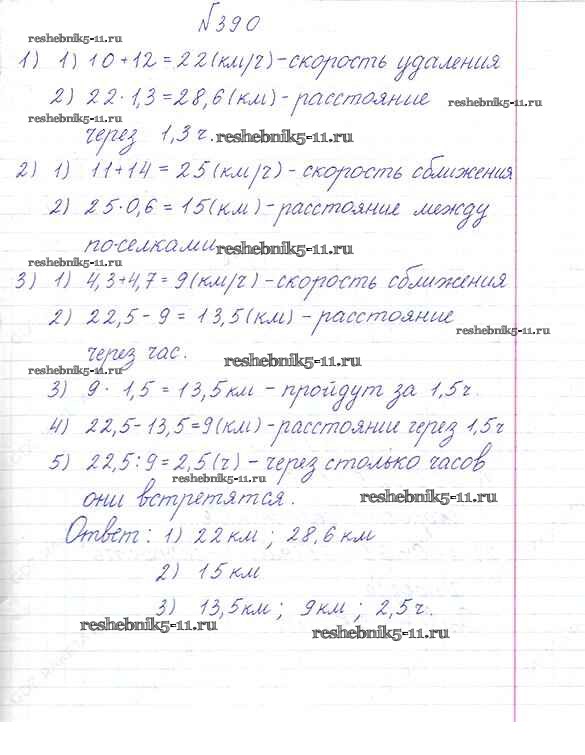 №390
reshebnik5-11.ru
1) 1) 10+12=22(км/ч)-скорость удаления
2) 22·1,3=28,6(км)-расстояние reshebnik5-11.ru
reshebnik5-11.ru
через 1,3ч. reshebnik5-11.ru
2) 1) 11+14=25(км/ч)-скорость сближения
2) 25·0,6=15(км)-расстояние между
поселками reshebnik5-11.ru
reshebnik5-11.ru
3) 1) 4,3+4,7=9(км/ч)-скорость сближения
2) 22,5-9=13,5(км)-расстояние
reshebnik5-11.ru
через час. reshebnik5-11.ru
reshebnik5-11.ru
3) 9·1,5=13,5км-пройдут за 1,5ч.
4) 22,5-13,5=9(км)-расстояние через 1,5ч
5) 22,5:9=2,5(ч)-через столько часов
reshebnik5-11.ru
они встретятся. reshebnik5-11.ru
Ответ: 1) 22км; 28,6км
2) 15км
3) 13,5км; 9км; 2,5ч.
reshebnik5-11.ru
reshebnik5-11.ru